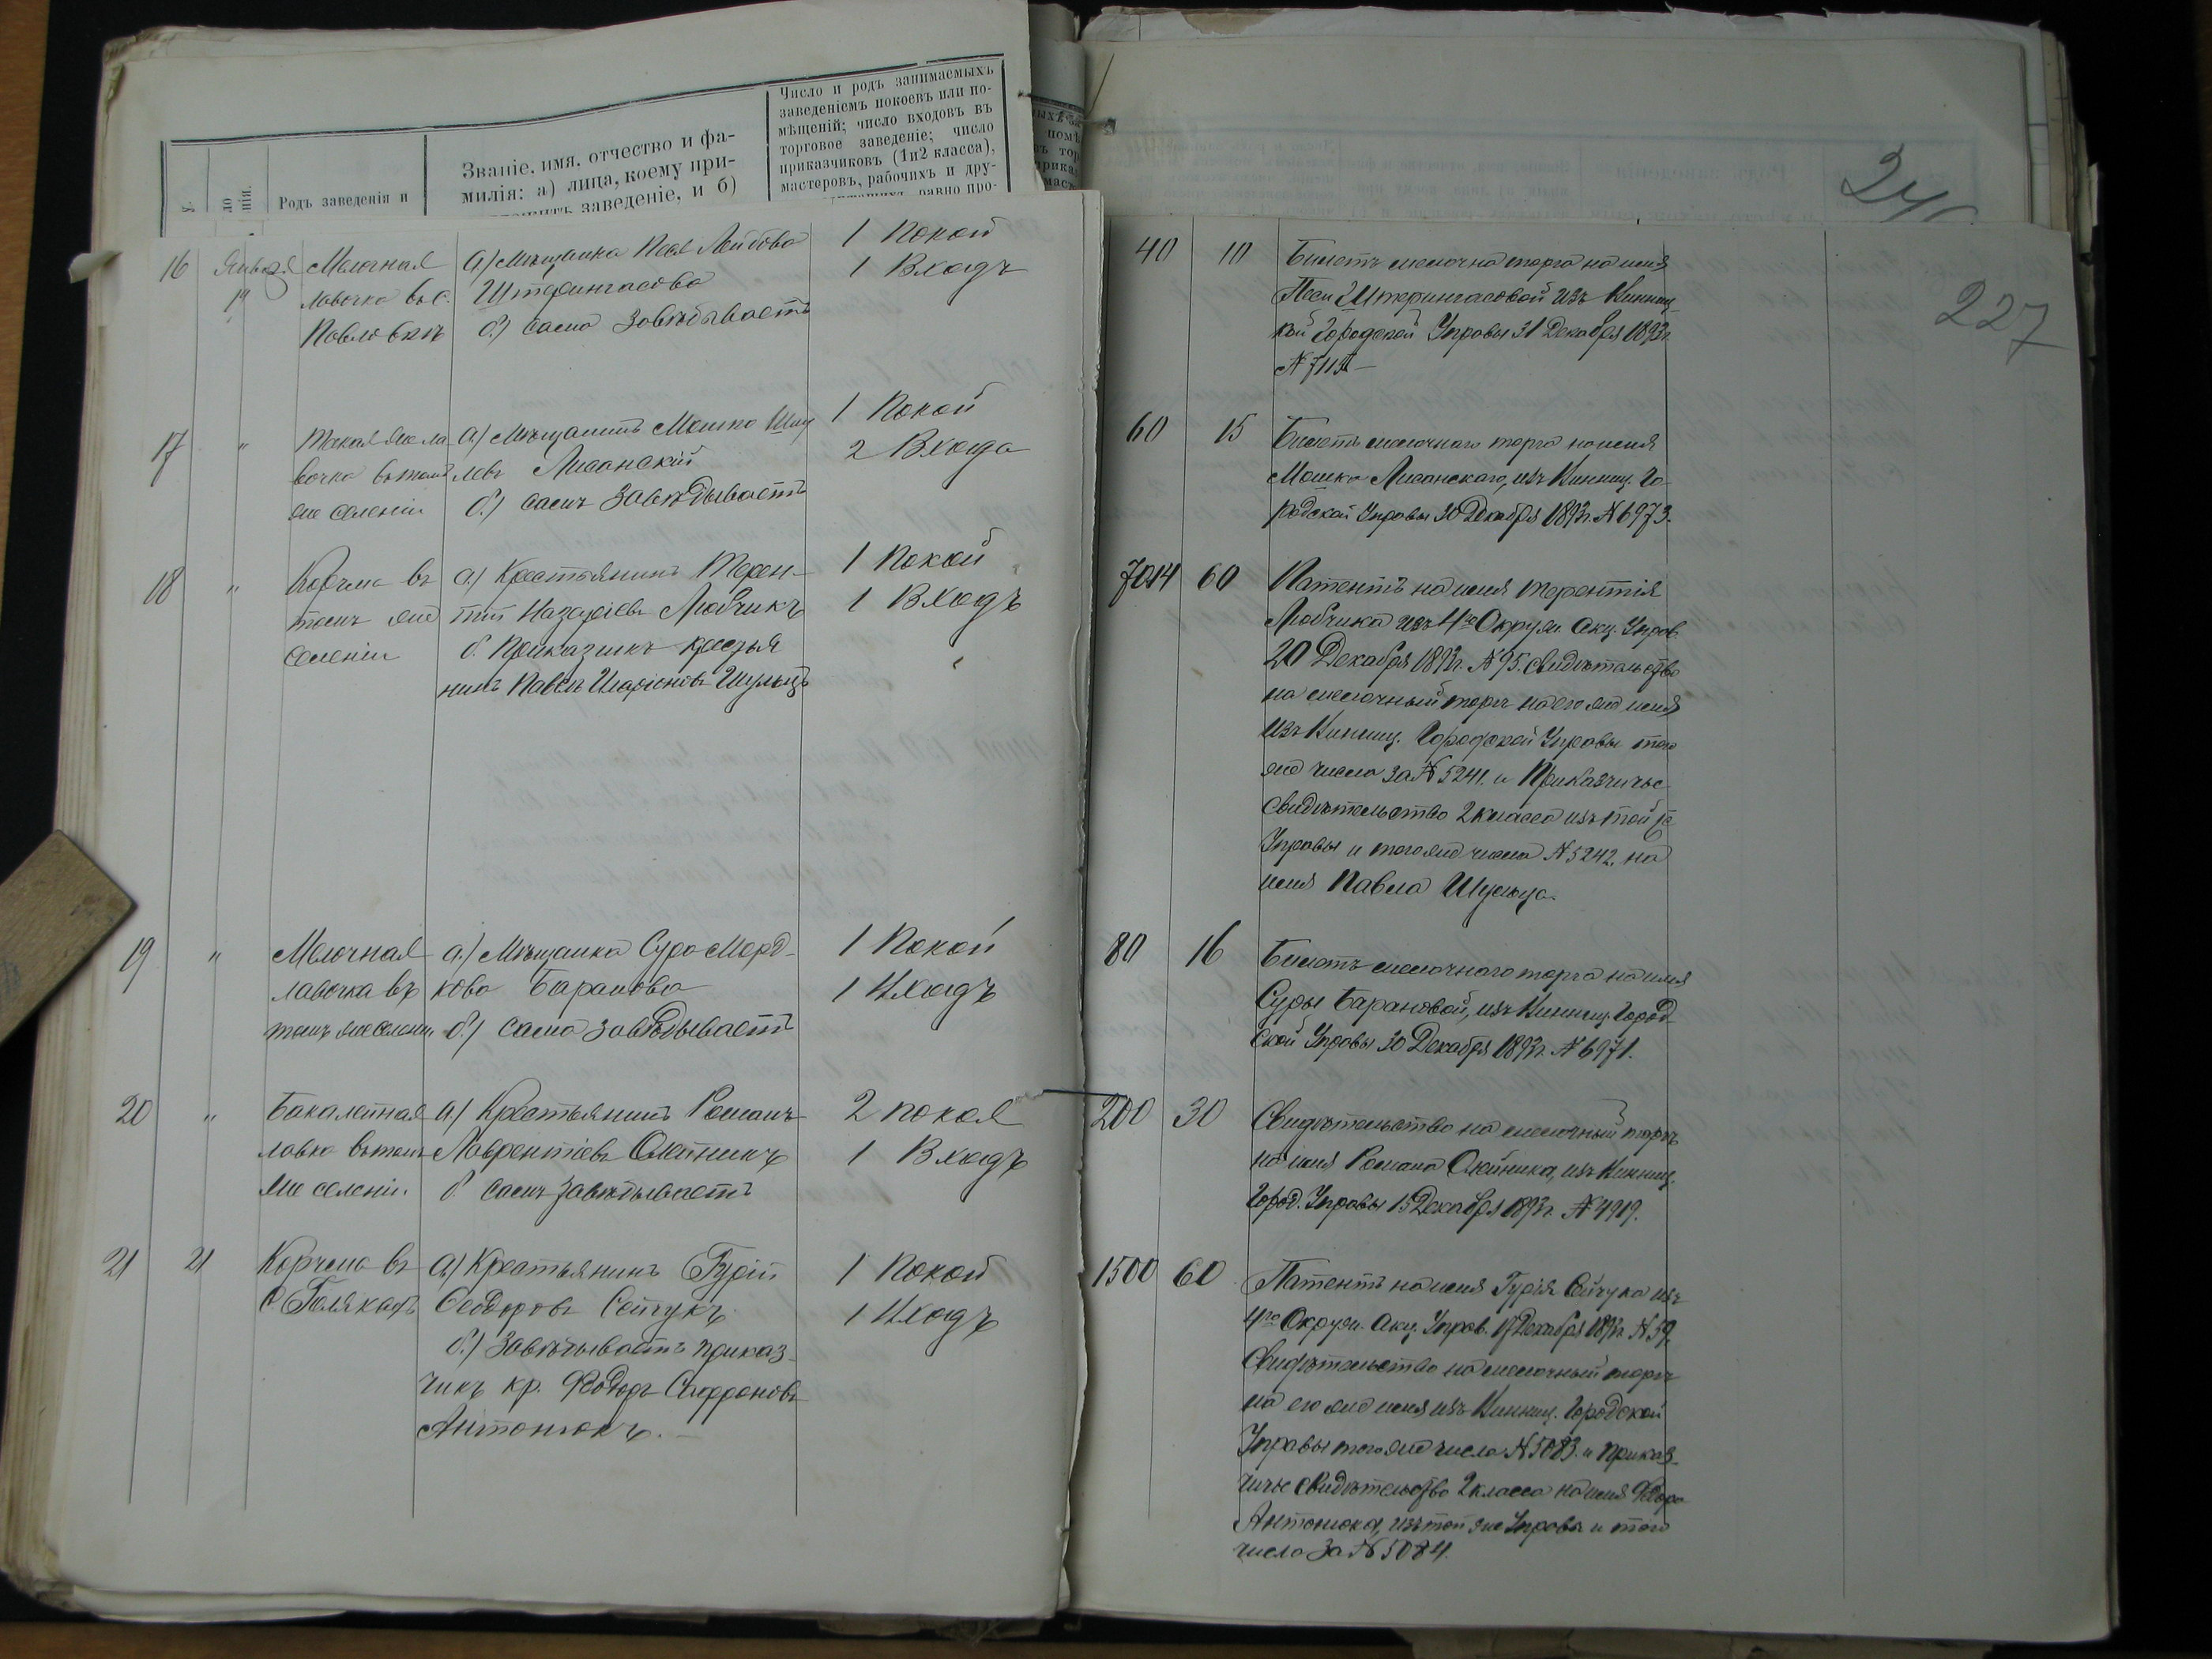 Родъ заведенія и
Званіе, имя, отчество и фа-
милія: а) лица, коему при-
заведеніе, и б)
Число и родъ занимаемыхъ
заведеніемъ покоевъ или по-
мѣщеній; число входовъ въ
торговое заведеніе; число
приказчиковъ (1 и 2 класса),
мастеровъ, рабочихъ и дру-
равно про-
227
16 Января Мелочная а) Мѣщанка Песя Лейбова 1 Покой
19 лавочка въ с. Штеренгасова 1 Входъ
Павловкѣ б) сама Завѣдываетъ
17 " Такая же ла а) Мѣщанинъ Мошко Шму 1 Покой
вочка въ томъ левъ Лисанскій 2 Входа
же селеніи б) самъ Завѣдываетъ
18 " Корчма въ а) Крестьянинъ Терен- 1 Покой
томъ же тій Назаріевъ Любчикъ 1 Входъ
селеніи б. Приказчикъ крестья
нинъ Павелъ Иларіоновъ Шульцъ
19 " Мелочная а) Мѣщанка Сура Морд- 1 Покой
лавочка въ кова Баранова 1 Входъ
томъ же селеніи б) сама завѣдываетъ
20 " Бакалейная а) Крестьянинъ Романъ 2 покоя
лавка въ томъ Лаврентіевъ Олейникъ 1 Входъ
же селеніи. б самъ завѣдываетъ
21 21 Корчма въ а) Крестьянинъ Гурій 1 Покой
с Полякахъ Ѳеодоровъ Сейчукъ 1 Входъ
б) Завѣдываетъ приказ-
чикъ кр. Ѳеодоръ Сафроновъ
Антонюкъ.
40 10 Билетъ мелочна торга на имя
Песи Штеренгасовой изъ Винниц
кой Городской Управы 31 Декабря 1893 г.
60 15 Билетъ мелочного торга на имя
Мошка Лисанскаго, изъ Винниц. Го-
родской Управы 30 Декабря 1893 г. № 6973.
60 Патентъ на имя Терентія
Любчика изъ 4го Окруж. Акц. Управ.
20 Декабря 1893 г. № 95. свидѣтельство
на мелочный торгъ на его же имя
изъ Винниц. Городской Управы того
же числа за № 5241. и Приказчичье
свидѣтельство 2 класса изъ той же
Управы и того же числа № 5242. на
имя Павла Шульца.
80 16 Билетъ мелочного торга на имя
Суры Барановой, изъ Винниц. Город
ской Управы 30 Декабря 1893 г. № 6971.
200 30 Свидѣтельство на мелочный торгъ
на имя Романа Олейника, изъ Винниц.
Город. Управы 15 Декабря 1893 г. № 4919.
1500 60 Патентъ на имя Гурія Сейчука изъ
4го Окруж. Акц. Управ. 17 Декабря 1893 г. № 59
Свидѣтельство на мелочный торгъ
на его же имя изъ Винниц. Городской
Управы того же числа № 5083. и приказ-
чичье свидѣтельство 2 класса на имя Ѳедора
Антонюка, изъ той же Управы и того
числа за № 5084.